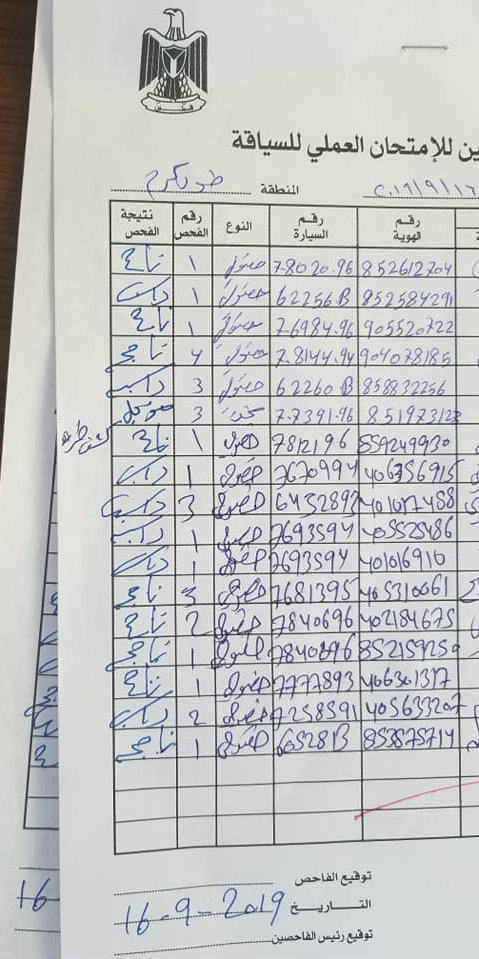 ين للإمتحان العملي للسياقة
المنطقة طولكرم
رقم الهوية رقم السيارة النوع رقم الفحص نتيجة الفحص
852612704 7.8020.96 خصوصي 1 ناجح
852584291 62256B خصوصي 1 راسب
905520722 7.6984.96 خصوصي 1 ناجح
904078185 7.8144.94 خصوصي 4 ناجح
858832256 62260B خصوصي 3 راسب
7.7391.96 3
7812196 خصوصي 1 ناجح
406756915 7670994 خصوصي 1 راسب
401017488 6452893 خصوصي 3 راسب
405525486 7693594 خصوصي 1 راسب
401016910 7693594 خصوصي 1 راسب
405310061 7681395 خصوصي 3 ناجح
402184675 7840696 خصوصي 2 ناجح
7840696 خصوصي 1 ناجح
406301317 7777893 خصوصي 1 ناجح
405633207 7258591 خصوصي 2 راسب
853875714 60528B خصوصي 1 ناجح
توقيع الفاحص
التاريخ 16-9-2019
توقيع رئيس الفاحصين
16-